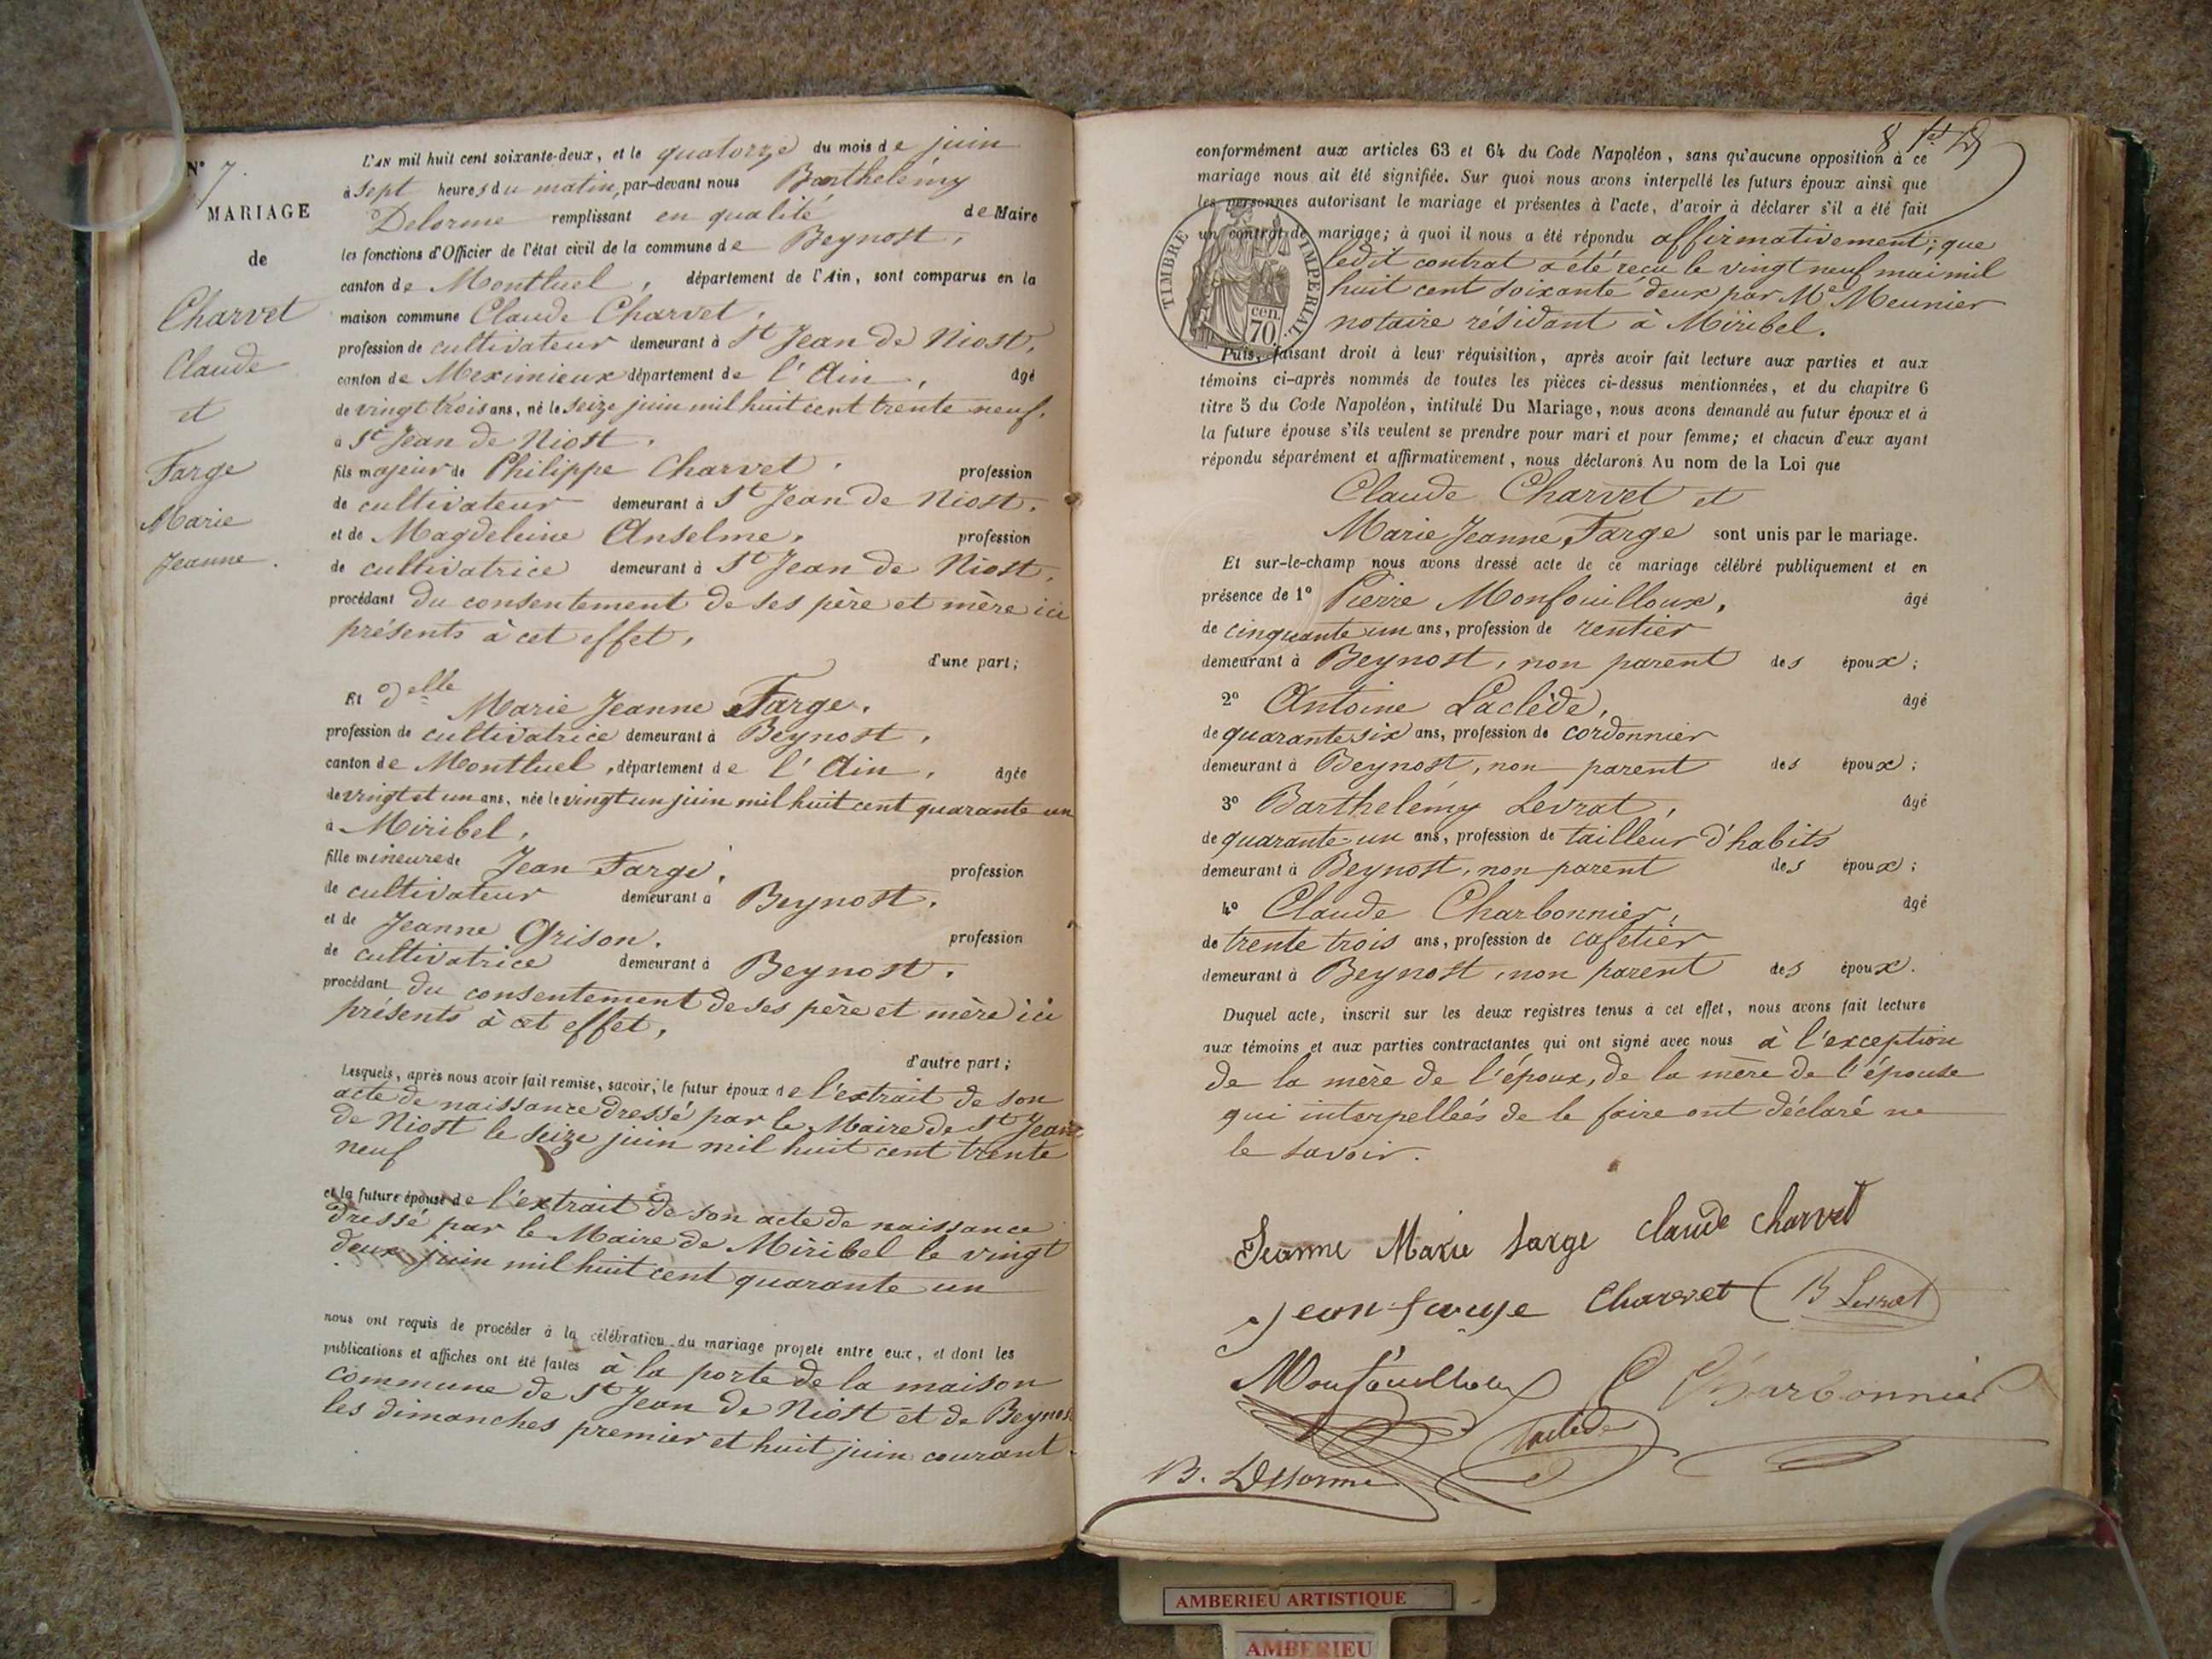 N° 7.
MARIAGE
de
Charvet
Claude
et
Farge
Marie
Jeanne.
L'AN mil huit cent soixante-deux, et le quatorze du mois de juin
à sept heures du matin, par-devant nous Barthelémy
Delorme remplissant en qualité de Maire
les fonctions d'Officier de l'état civil de la commune de Beynost,
canton de Montluel, département de l'Ain, sont comparus en la
maison commune Claude Charvet,
profession de cultivateur demeurant à St Jean de Niost,
canton de Meximieux département de l'Ain, âgé
de vingt trois ans, né le seize juin mil huit cent trente neuf,
à St Jean de Niost.
fils majeur de Philippe Charvet, profession
de cultivateur demeurant à St Jean de Niost,
et de Magdeleine Anselme, profession
de cultivatrice demeurant à St Jean de Niost,
procédant du consentement de ses père et mère ici
présents à cet effet,
d'une part;
Et delle Marie Jeanne Farge,
profession de cultivatrice demeurant à Beynost,
canton de Montluel, département de l'Ain, âgée
de vingt et un ans, née le vingt un juin mil huit cent quarante un
à Miribel,
fille mineure de Jean Farge, profession
de cultivateur demeurant à Beynost,
et de Jeanne Grison, profession
de cultivatrice demeurant à Beynost,
procédant du consentement de ses père et mère ici
présents à cet effet,
d'autre part;
Lesquels, après nous avoir fait remise, savoir, le futur époux de l'extrait de son
acte de naissance dressé par le Maire de St Jean
de Niost le seize juin mil huit cent trente
neuf
et la future épouse de l'extrait de son acte de naissance
dressé par le Maire de Miribel le vingt
deux juin mil huit cent quarante un
nous ont requis de procéder à la célébration du mariage projeté entre eux, et dont les
publications et affiches ont été faites à la porte de la maison
commune de St Jean de Niost et de Beynost
les dimanches premier et huit juin courant
8
conformément aux articles 63 et 64 du Code Napoléon, sans qu'aucune opposition à ce
mariage nous ait été signifiée. Sur quoi nous avons interpellé les futurs époux ainsi que
les personnes autorisant le mariage et présentes à l'acte, d'avoir à déclarer s'il a été fait
un contrat de mariage; à quoi il nous a été répondu affirmativement; que
ledit contrat a été reçu le vingt neuf mai mil
huit cent soixante deux par Me Meunier
notaire résidant à Miribel.
TIMBRE IMPERIAL
70 cen.
Puis, faisant droit à leur réquisition, après avoir fait lecture aux parties et aux
témoins ci-après nommés de toutes les pièces ci-dessus mentionnées, et du chapitre 6
titre 5 du Code Napoléon, intitulé Du Mariage, nous avons demandé au futur époux et à
la future épouse s'ils veulent se prendre pour mari et pour femme; et chacun d'eux ayant
répondu séparément et affirmativement, nous déclarons Au nom de la Loi que
Claude Charvet et
Marie Jeanne Farge sont unis par le mariage.
Et sur-le-champ nous avons dressé acte de ce mariage célébré publiquement et en
présence de 1° Pierre Monfouilloux, âgé
de cinquante un ans, profession de rentier
demeurant à Beynost, non parent des époux;
2° Antoine Laclède, âgé
de quarante six ans, profession de cordonnier
demeurant à Beynost, non parent des époux;
3° Barthelémy Levrat, âgé
de quarante-un ans, profession de tailleur d'habits
demeurant à Beynost, non parent des époux;
4° Claude Charbonnier, âgé
de trente trois ans, profession de cafetier
demeurant à Beynost, non parent des époux.
Duquel acte, inscrit sur les deux registres tenus à cet effet, nous avons fait lecture
aux témoins et aux parties contractantes qui ont signé avec nous à l'exception
de la mère de l'époux, de la mère de l'épouse
qui interpellées de le faire ont déclaré ne
le savoir.
Jeanne Marie farge Claude Charvet
jean farge Charvet B Levrat
Monfouilloux C Charbonnier
Laclède
B. Delorme
AMBERIEU ARTISTIQUE
AMBERIEU